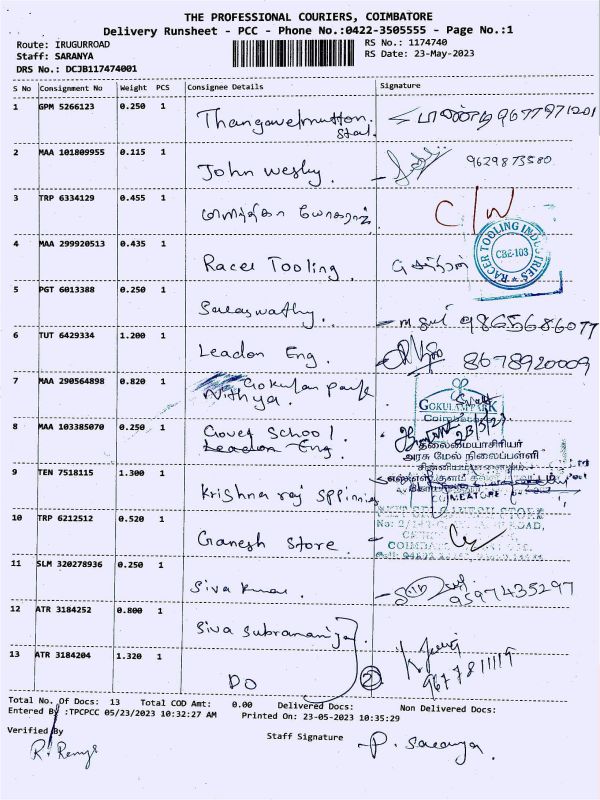 THE PROFESSIONAL COURIERS, COIMBATORE
Delivery Runsheet - PCC - Phone No.:0422-3505555 - Page No.:1
Route: IRUGURROAD RS No.: 1174740
Staff: SARANYA RS Date: 23-May-2023
DRS No.: DCJB117474001
S No Consignment No Weight PCS Consignee Details Signature
1 GPM 5266123 0.250 1
Thangavelmutton 9677971201
Stal.
2 MAA 101809955 0.115 1
John wesly. 9629873580
3 TRP 6334129 0.455 1
C/W
RACER TOOLING INDUSTRIES
CBE-103
4 MAA 299920513 0.435 1
Racer Tooling.
5 PGT 6013388 0.250 1
Saraswathy. 9865686077
6 TUT 6429334 1.200 1
Leadon Eng. 8678920009
7 MAA 290564898 0.820 1
Gokulam park
Nithya.
GOKULAM PARK
8 MAA 103385070 0.250 1
Govt School. 23/5/23
Leadon Eng
தலைமையாசிரியர்
அரசு மேல் நிலைப்பள்ளி
9 TEN 7518115 1.300 1
Krishna raj spinning
10 TRP 6212512 0.520 1
Ganesh Store.
11 SLM 320278936 0.250 1
Siva Kumar. 9597435297
12 ATR 3184252 0.800 1
Siva Subramaniya.
13 ATR 3184204 1.320 1
DO 2 9677811119
Total No. Of Docs: 13 Total COD Amt: 0.00 Delivered Docs: Non Delivered Docs:
Entered By :TPCPCC 05/23/2023 10:32:27 AM Printed On: 23-05-2023 10:35:29
Verified By Staff Signature
P. Saranya.